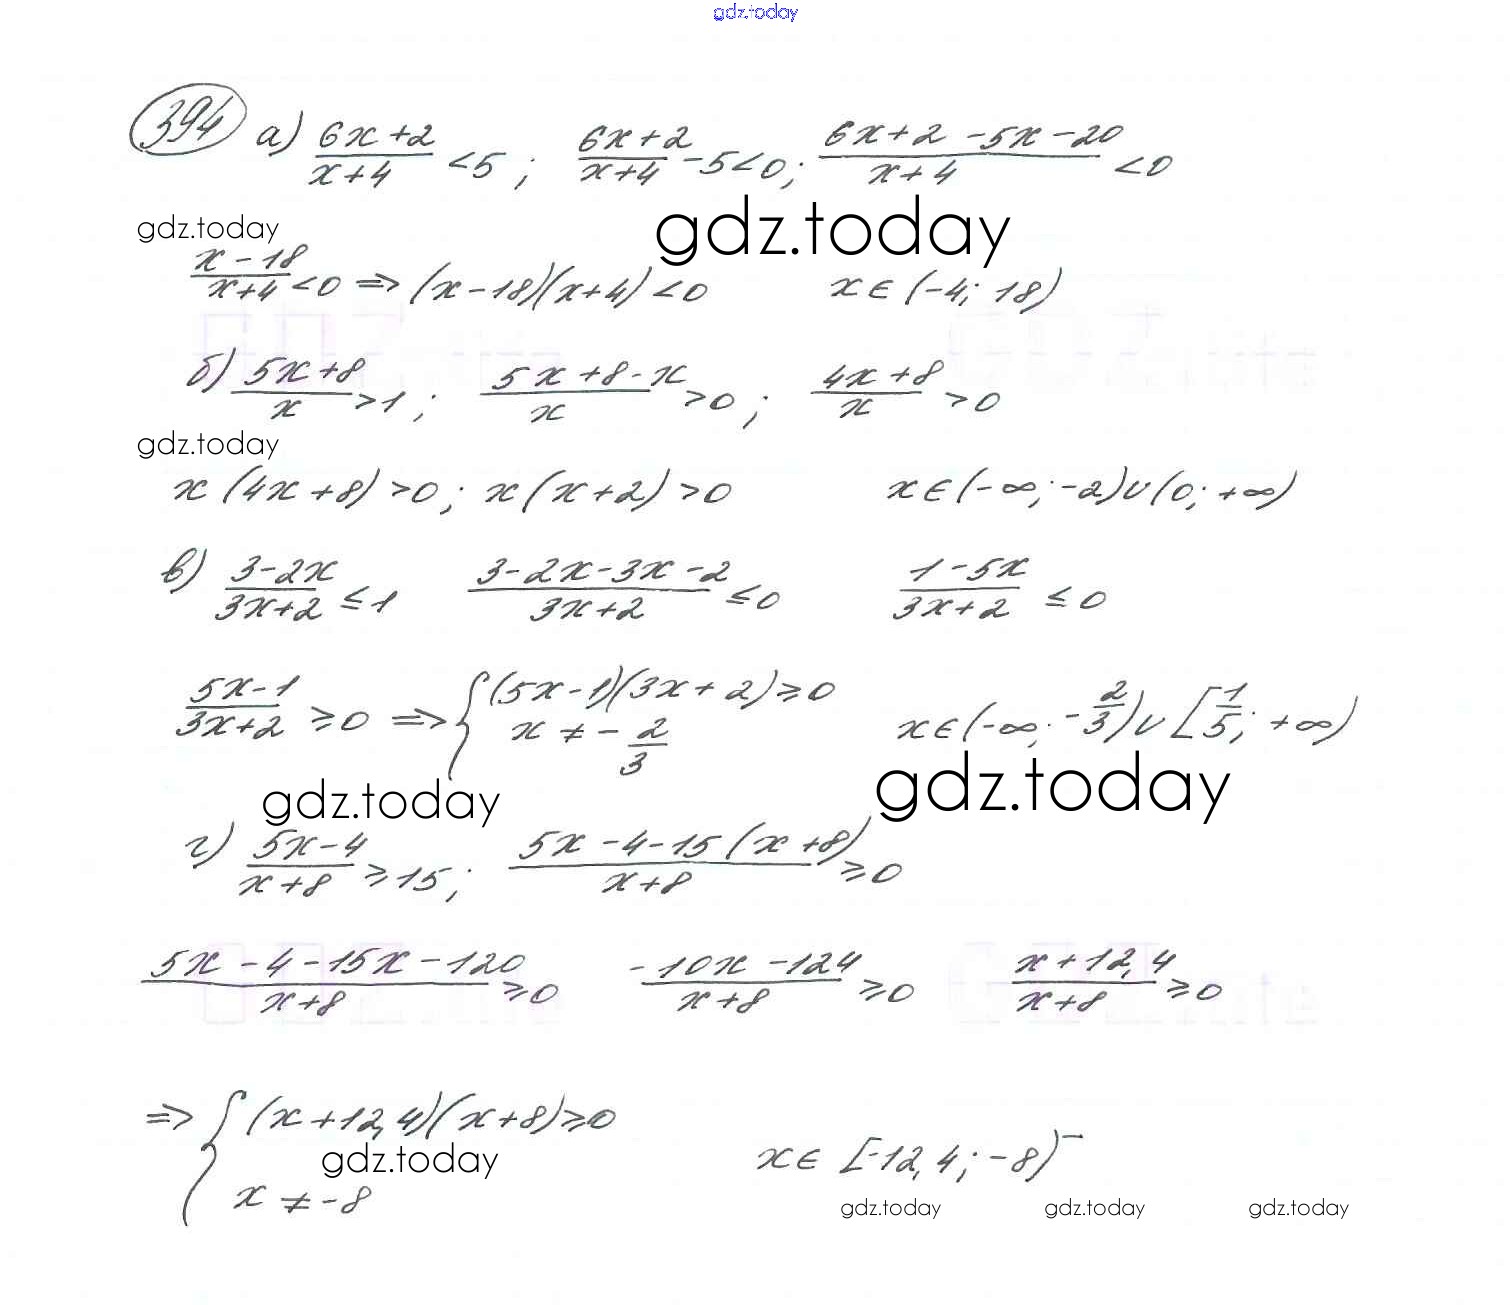 gdz.today
394 а) (6x+2)/(x+4) <5; (6x+2)/(x+4) -5<0; (6x+2-5x-20)/(x+4) <0
gdz.today gdz.today
(x-18)/(x+4) <0 => (x-18)(x+4)<0 x∈(-4; 18)
б) (5x+8)/x >1; (5x+8-x)/x >0; (4x+8)/x >0
gdz.today
x(4x+8)>0; x(x+2)>0 x∈(-∞; -2)∪(0; +∞)
в) (3-2x)/(3x+2) ≤1 (3-2x-3x-2)/(3x+2) ≤0 (1-5x)/(3x+2) ≤0
(5x-1)/(3x+2) ≥0 => { (5x-1)(3x+2)≥0 x∈(-∞; -2/3)∪[1/5; +∞)
x ≠ -2/3
gdz.today gdz.today
г) (5x-4)/(x+8) ≥15; (5x-4-15(x+8))/(x+8) ≥0
(5x-4-15x-120)/(x+8) ≥0 (-10x-124)/(x+8) ≥0 (x+12,4)/(x+8) ≥0
=> { (x+12,4)(x+8)≥0
gdz.today x∈ [-12,4; -8)
x ≠ -8
gdz.today gdz.today gdz.today